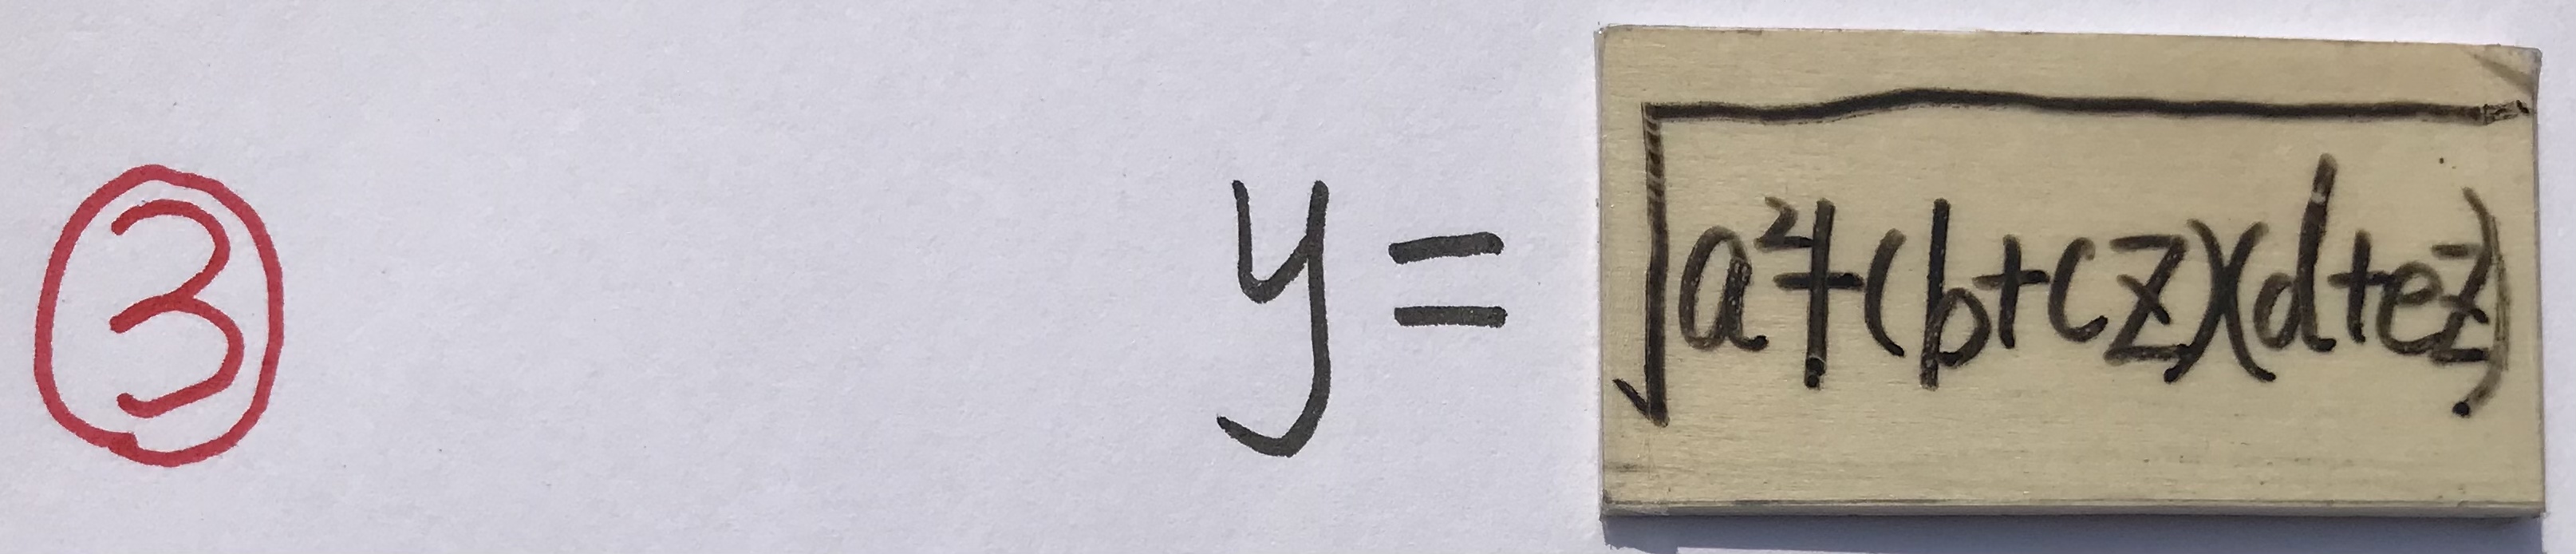 ③ y = √(a²+(b+cz)(d+ez))